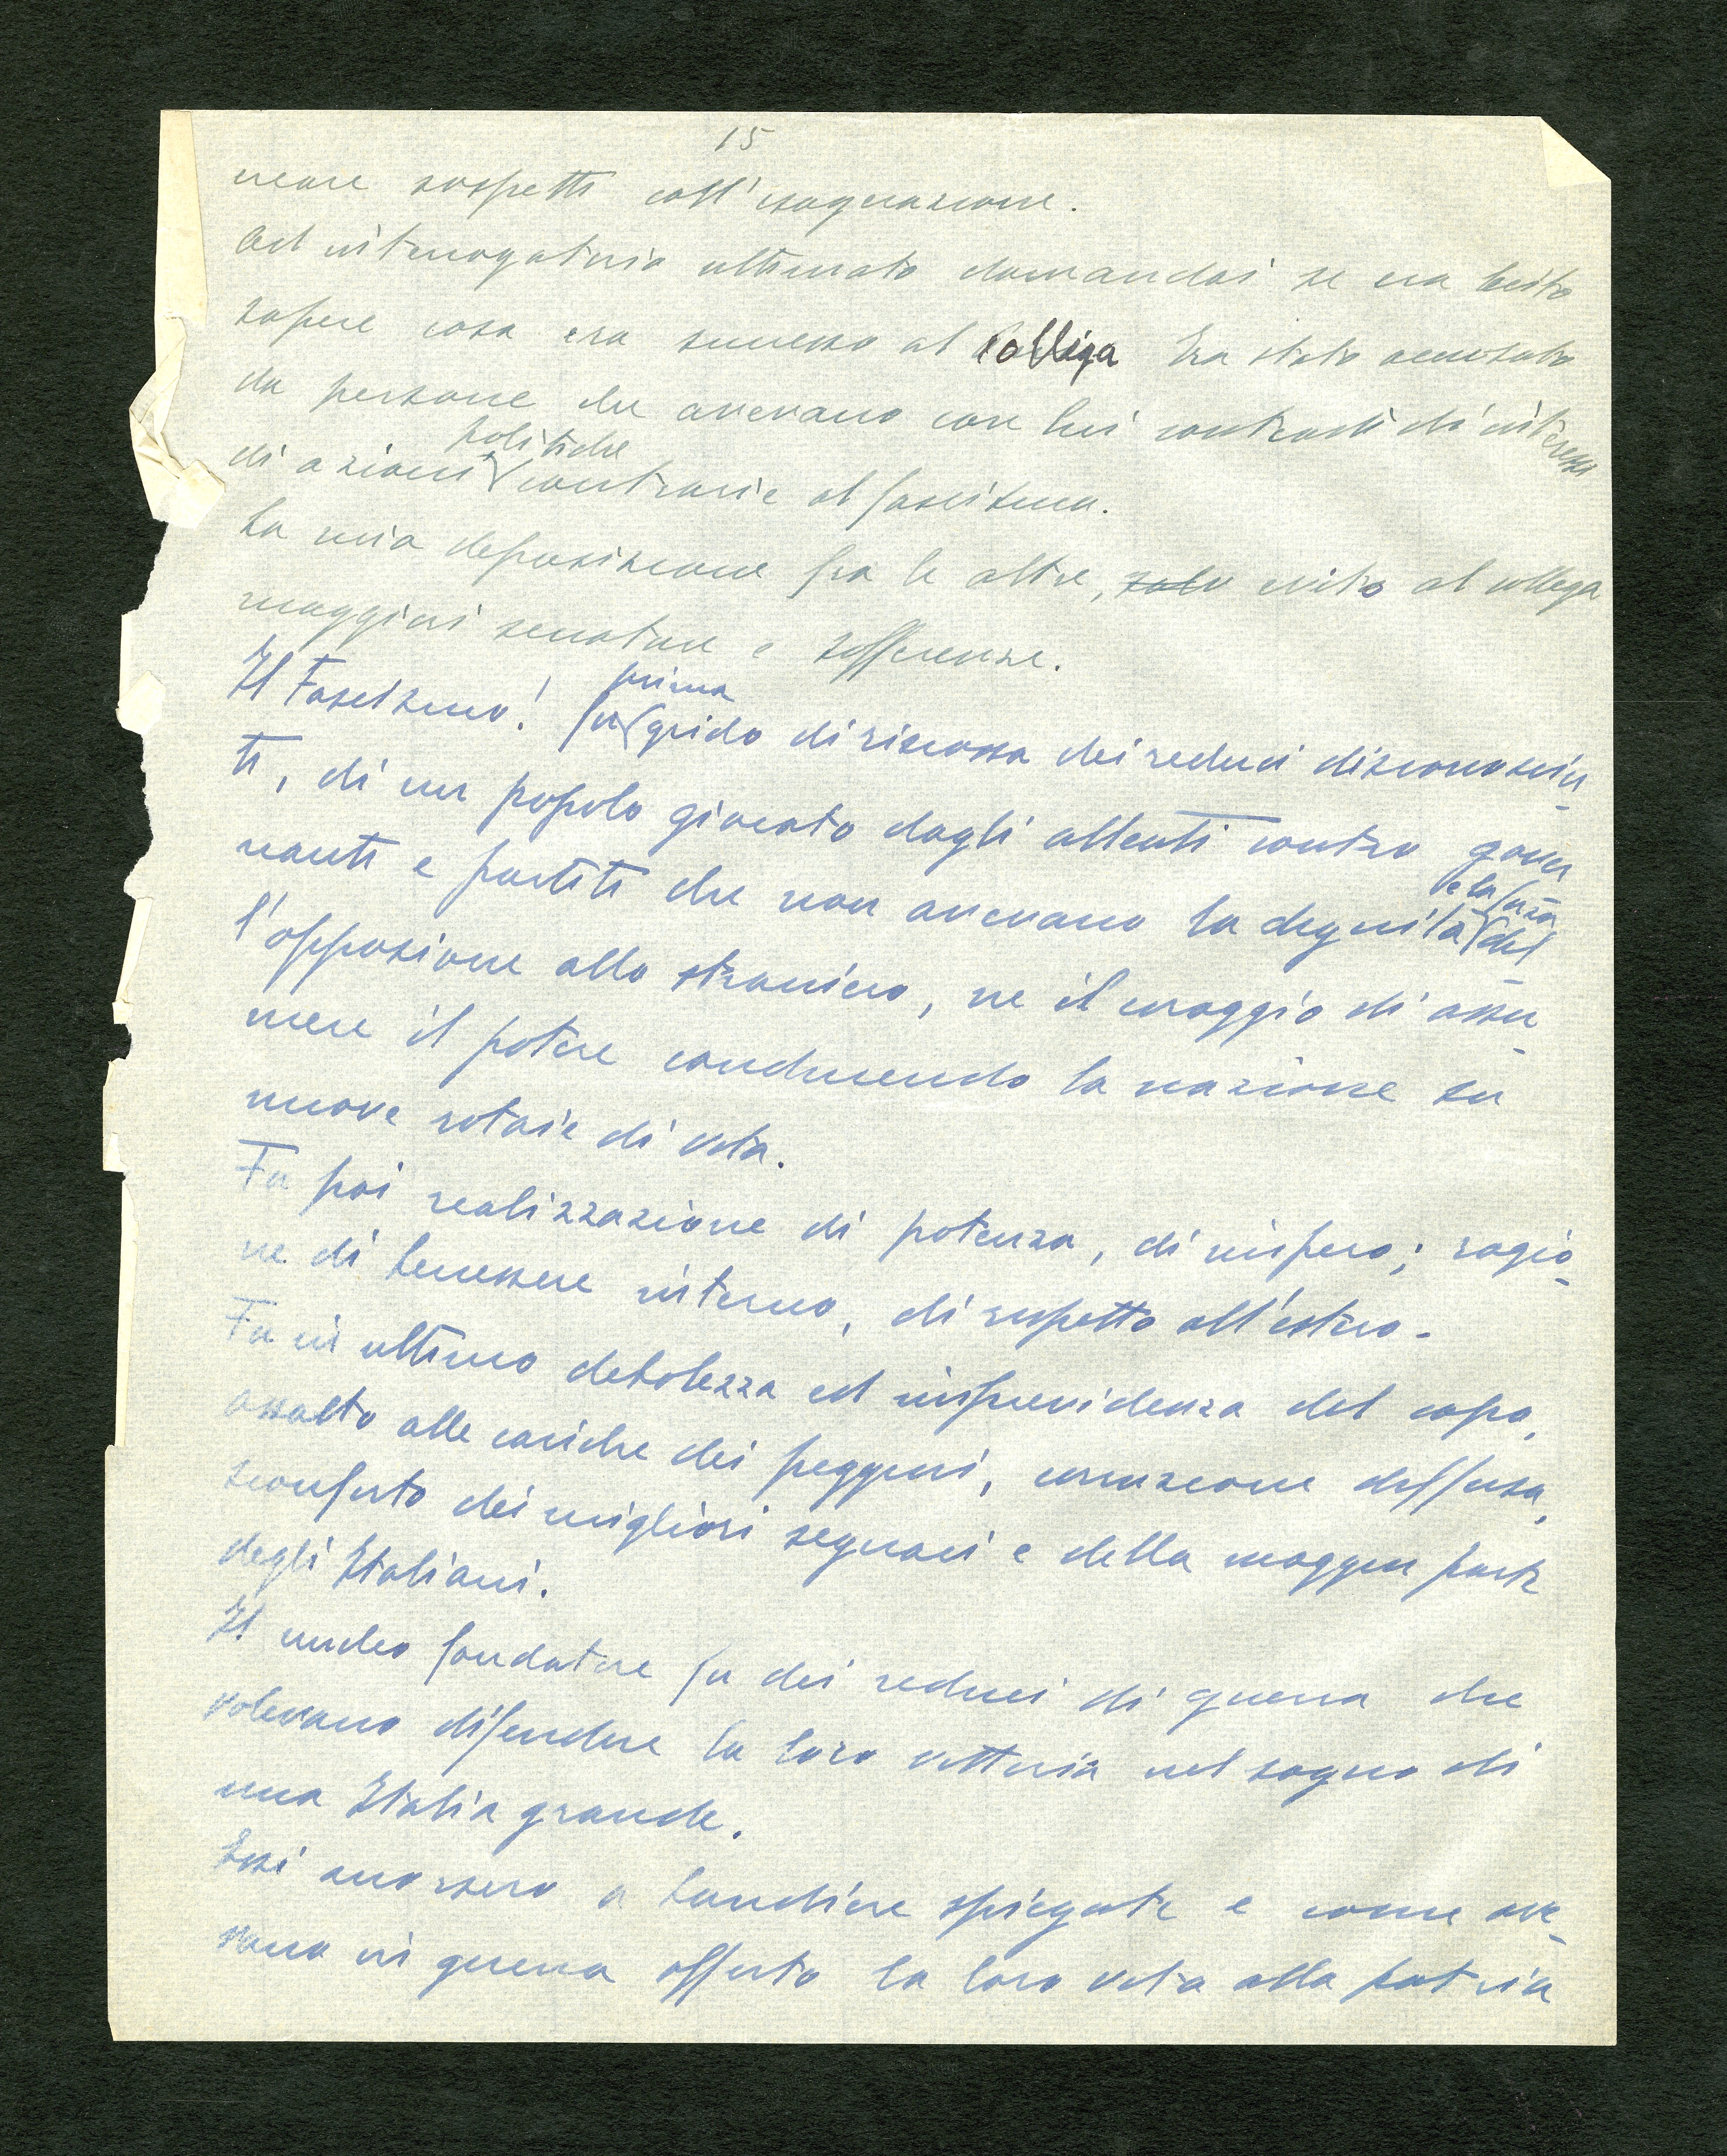 15
sospetti coll'esagerazione.
Ad interrogatorio ultimato domandai se era lecito
sapere cosa era successo al Collega Era stato accusato
da persone che avevano con lui contrasti di interessi
politiche
di azioni contrarie al fascismo.
La mia deposizione fra le altre, evitò al collega
maggiori seccature e sofferenze.
prima
Il Fascismo! fu grido di riscossa dei reduci disconosciu-
ti, di un popolo giocato dagli alleati contro gover
e la forza
nanti e partiti che non avevano la dignità del
l'opposizione allo straniero, ne il coraggio di assu-
mere il potere conducendo la nazione su
nuove rotaie di vita.
Fu poi realizzazione di potenza, di impero; ragio-
ne di benessere interno, di rispetto all'estero.
Fu in ultimo debolezza ed imprevidenza del capo,
assalto alle cariche dei peggiori, corruzione diffusa,
sconforto dei migliori seguaci e della maggior parte
degli Italiani.
Il nucleo fondatore fu dei reduci di guerra che
volevano difendere la loro vittoria nel sogno di
una Italia grande.
Essi mossero a bandiere spiegate e come ave-
vano in guerra offerto la loro vita alla patria